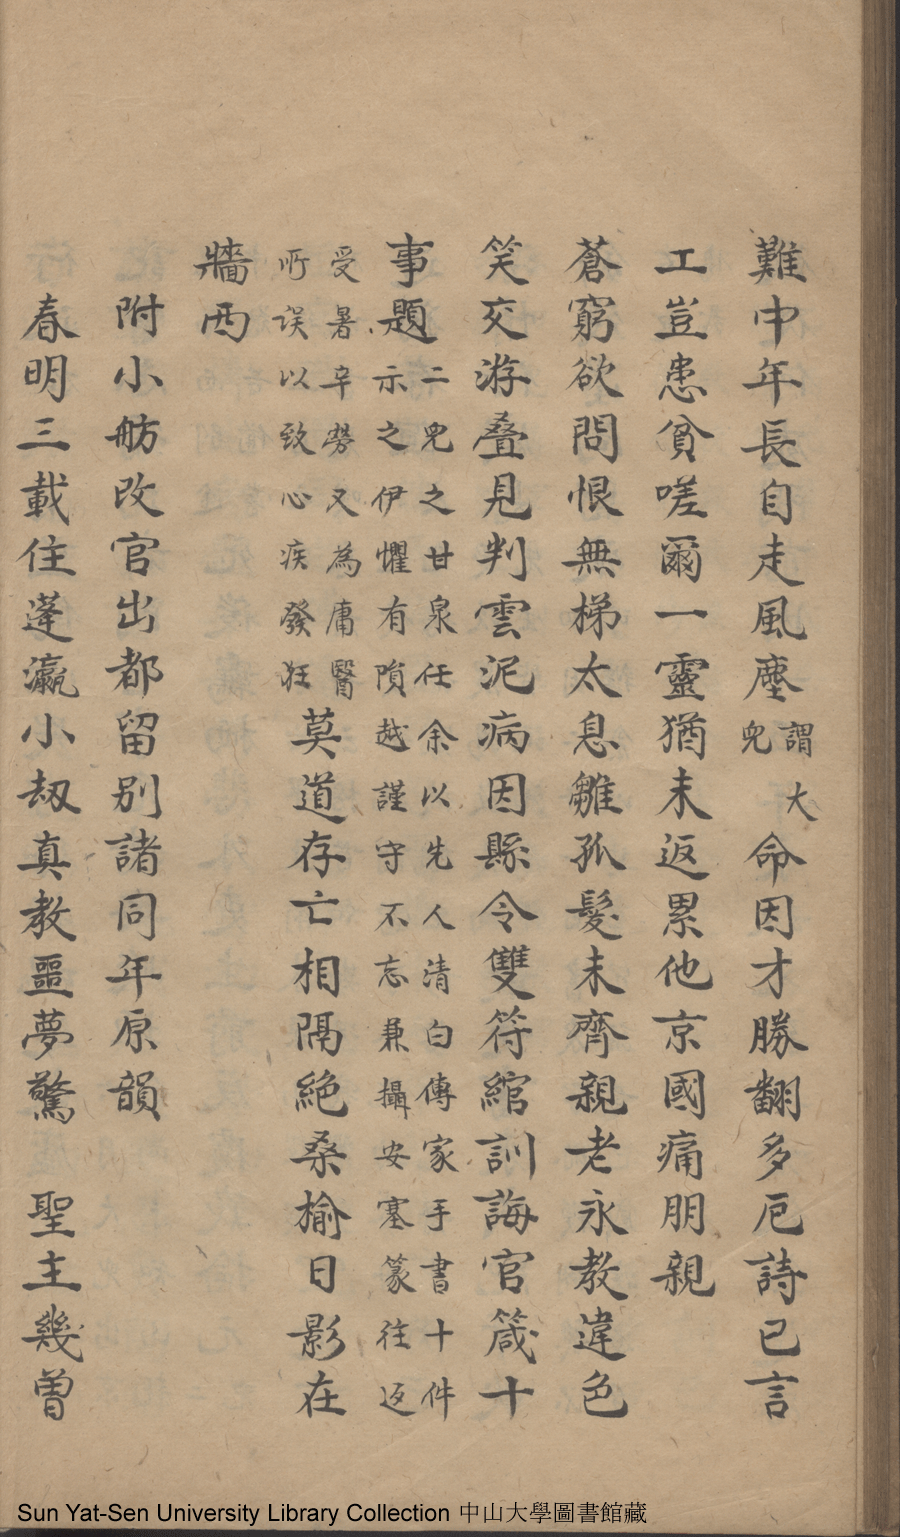 難中年長自走風塵謂大兒命因才勝翻多厄詩已言
工豈患貧嗟爾一靈猶未返累他京國痛朋親
蒼窮欲問恨無梯太息雛孤髮未齊親老永教違色
笑交游叠見判雲泥病因縣令雙符綰訓誨官箴十
事題二兒之甘泉任余以先人清白傳家手書十件示之伊懼有隕越謹守不忘兼攝安塞篆往返
受暑辛勞又為庸醫所误以致心疾發狂莫道存亡相隔絶桑榆日影在
牆西
附小舫改官出都留別諸同年原韻
春明三載住蓬瀛小刼真教噩夢驚 聖主幾曾
Sun Yat-Sen University Library Collection 中山大學圖書館藏